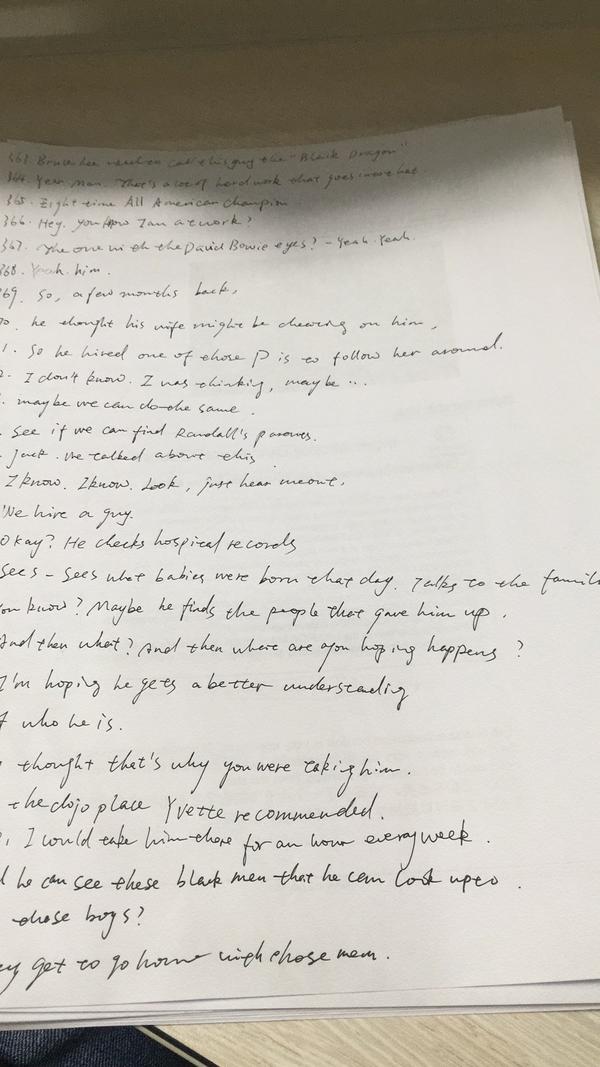 363. Bruce Lee used to call this guy the "Black Dragon"
364. Yeah, man. That's a lot of hard work that goes into that
365. Eight-time All American Champion
366. Hey. you know Ian at work?
367. The one with the David Bowie eyes? - Yeah. Yeah.
368. Yeah. him.
369. So, a few months back,
70. he thought his wife might be cheating on him,
1. So he hired one of those P is to follow her around.
2. I don't know. I was thinking, maybe ...
maybe we can do the same.
See if we can find Randall's parents.
Jack. We talked about this
I know. I know. Look, just hear me out.
We hire a guy.
Okay? He checks hospital records
Sees - Sees what babies were born that day. Talks to the famili
you know? Maybe he finds the people that gave him up.
And then what? And then what are you hoping happens?
I'm hoping he gets a better understanding
f who he is.
thought that's why you were taking him.
the dojo place Yvette recommended.
I would take him there for an hour every week.
d he can see these black men that he can look up to.
those boys?
ey get to go home with those men.